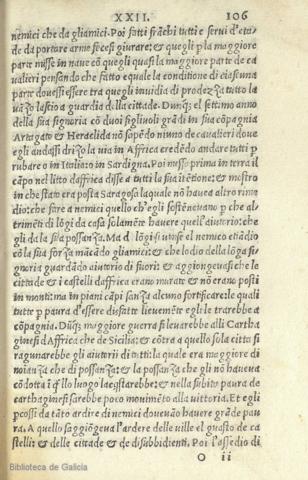 XXII. 106
nemici che da gliamici. Poi fatti frāchi tutti e servi d'eta,
de da portare arme fecesi giurare; & quegli p la maggiore
parte misse in nave cō quegli quasi la maggiore parte de ca
valieri pensando che fatto equale la conditione di ciascuna
parte dovessi essere tra quegli invidia di prodezza tutto la
vāzo lascio a guardia della cittade. Dunq; el settimo anno
della sua signoria cō duoi figlivoli grādi in sua cōpagnia
Artagato & Heraclida nō sapēdo niuno de cavalieri dove
egli andassi drizo la via in Affrica credēdo andare tutti p
rubare o in Italia: o in Sardigna. Poi messo prima in terra il
cāpo nel litto daffrica disse a tutti la sua itētione; & mostro
in che stato era posta Saragosa laquale nō havea altro rime
dio: che fare a nemici quello ch'egli sostenevano p che al
trimēti di lōgi da casa solamēte havere quell'aiutorio: che
gli da la sua possanza. Ma d lōgi si vinse el nemico etiādio
cō la sua forza mācādo gliamici: & che lodio della lōga si,
gnoria guardādo aiutorio di fuori: & aggiongevasi che le
cittade & i castelli daffrica erano murate & nō erano posti
in monti: ma in piani cāpi sanza alcuno fortificare: le quali
tutte p paura d'essere disfatte lievemēte egli le trarrebbe a
cōpagnia. Dūq; maggiore guerra si levarebbe alli Cartha
ginesi d'Affrica che de Sicilia; & cōtra a quello sola citta si
ragunarebbe gli aiutorii di tutti: la quale era maggiore di
noianza che di possanza: & la possanza che gli nō haveva
cōdotta i q̄llo luogo lacq̄starebbe: & nella subita paura de
carthaginesi sarebbe poco movimēto alla vittoria. Et egli
pcossi da tāto ardire di nemici doveuāo havere grāde pau
ra. A quello saggiōgeva l'ardere delle ville el guasto de ca
stelli: & delle cittade & de disubbidienti. Poi l'assedio di
O ii
Biblioteca de Galicia